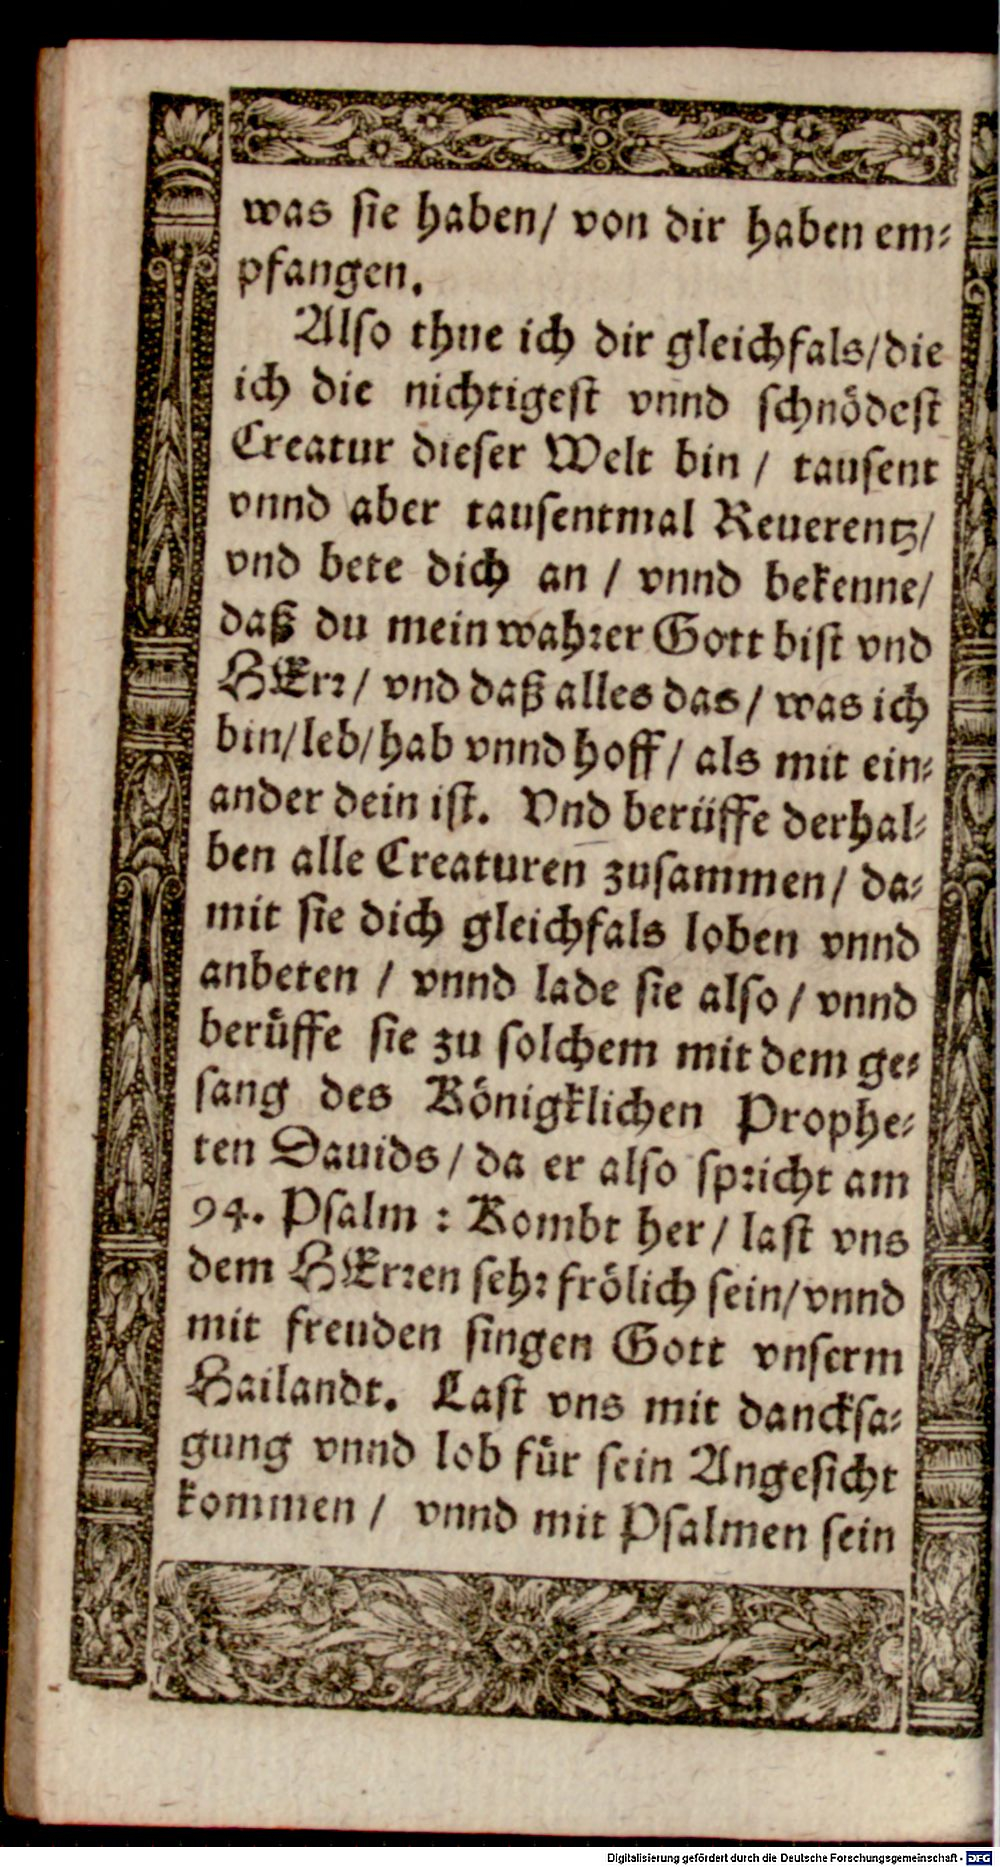 was sie haben/ von dir haben em-
pfangen.
Also thue ich dir gleichfals/die
ich die nichtigest vnnd schnödest
Creatur dieser Welt bin / tausent
vnnd aber tausentmal Reuerentz/
vnd bete dich an / vnnd bekenne/
daß du mein wahrer Gott bist vnd
HErr / vnd daß alles das / was ich
bin/leb/hab vnnd hoff / als mit ein-
ander dein ist. Vnd berüffe derhal-
ben alle Creaturen zusammen / da-
mit sie dich gleichfals loben vnnd
anbeten / vnnd lade sie also / vnnd
berüffe sie zu solchem mit dem ge-
sang des Königklichen Prophe-
ten Dauids / da er also spricht am
94. Psalm : Kombt her / last vns
dem HErren sehr frölich sein/vnnd
mit freuden singen Gott vnserm
Hailandt. Last vns mit dancksa-
gung vnnd lob für sein Angesicht
kommen / vnnd mit Psalmen sein
Digitalisierung gefördert durch die Deutsche Forschungsgemeinschaft - DFG